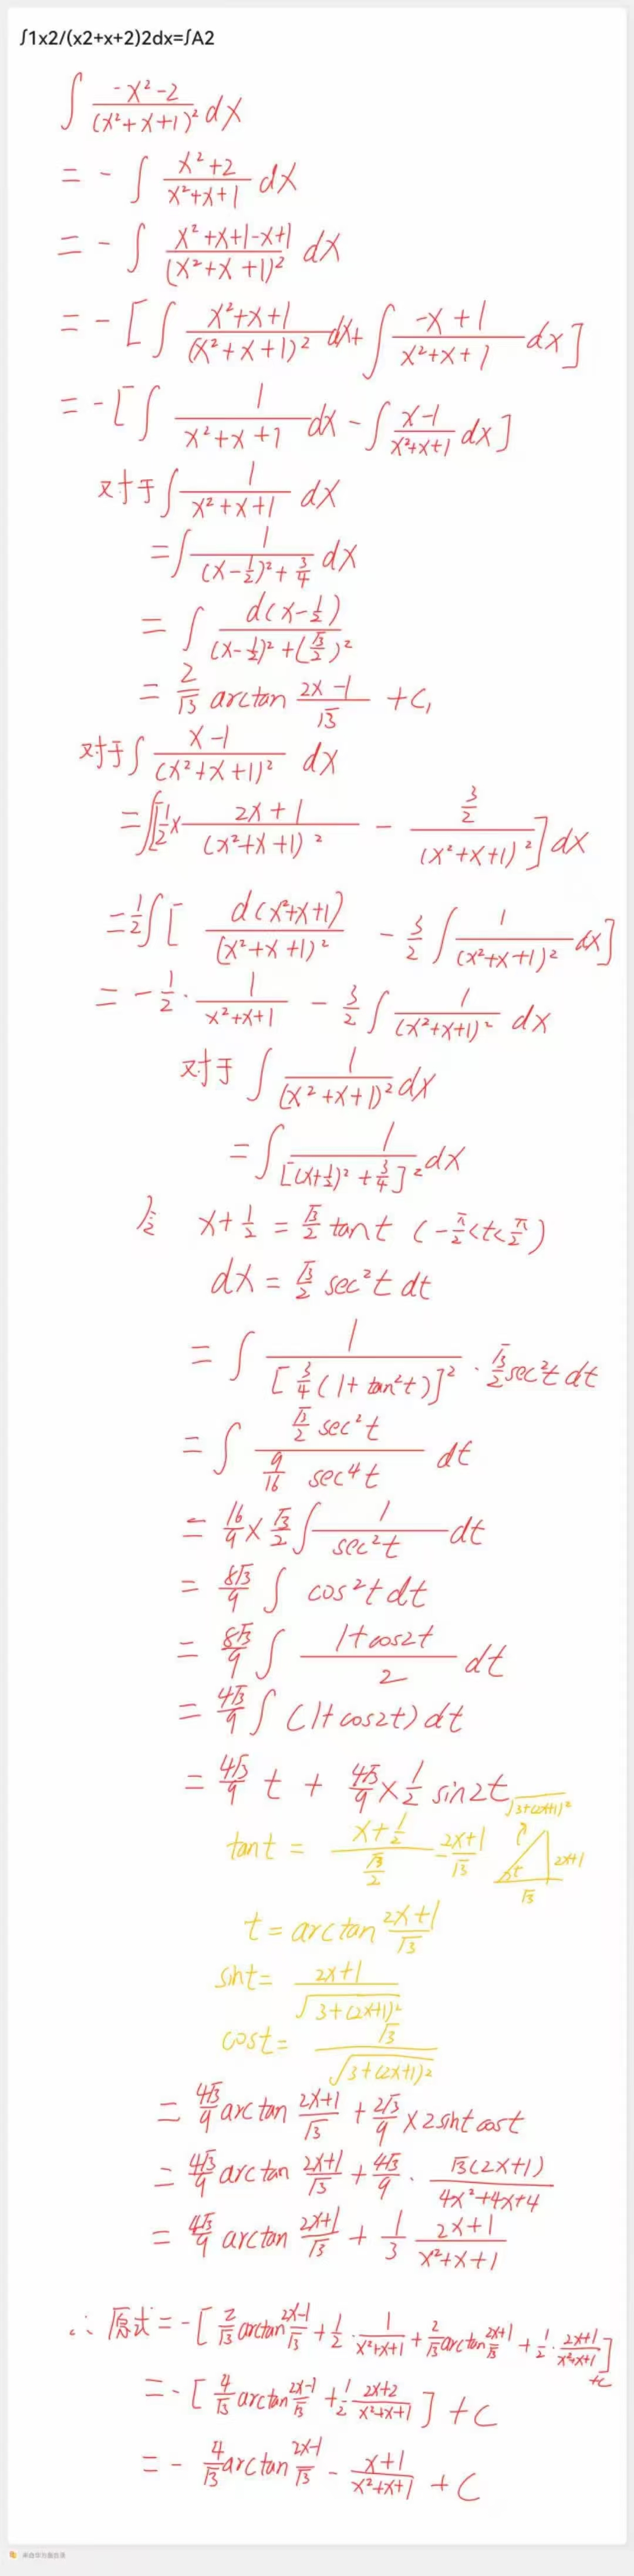 ∫1x2/(x2+x+2)2dx=∫A2
∫ (-x²-2)/(x²+x+1)² dx
= - ∫ (x²+2)/(x²+x+1) dx
= - ∫ (x²+x+1-x+1)/(x²+x+1)² dx
= - [∫ (x²+x+1)/(x²+x+1)² dx+ ∫ (-x+1)/(x²+x+1) dx]
= -[∫ 1/(x²+x+1) dx - ∫ (x-1)/(x²+x+1) dx]
对于∫ 1/(x²+x+1) dx
=∫ 1/((x-1/2)²+3/4) dx
= ∫ d(x-1/2)/((x-1/2)²+(√3/2)²)
= 2/√3 arctan (2x-1)/√3 +C₁
对于∫ (x-1)/(x²+x+1)² dx
=∫[1/2× (2x+1)/(x²+x+1)² - (3/2)/(x²+x+1)²]dx
=1/2∫[ d(x²+x+1)/(x²+x+1)² - 3/2 ∫ 1/(x²+x+1)² dx]
= -1/2· 1/(x²+x+1) - 3/2 ∫ 1/(x²+x+1)² dx
对于 ∫ 1/(x²+x+1)² dx
= ∫ 1/[(x+1/2)²+3/4]² dx
令 x+1/2 = √3/2 tant (-π/2<t<π/2)
dx = √3/2 sec²t dt
= ∫ 1/[3/4(1+tan²t)]² · √3/2 sec²t dt
= ∫ (√3/2 sec²t)/(9/16 sec⁴t) dt
= 16/9 × √3/2 ∫ 1/sec²t dt
= 8√3/9 ∫ cos²t dt
= 8√3/9 ∫ (1+cos2t)/2 dt
= 4√3/9 ∫ (1+cos2t) dt
= 4√3/9 t + 4√3/9 × 1/2 sin2t
tant = (x+1/2)/(√3/2) = (2x+1)/√3
√(3+(2x+1)²)
2x+1
t
√3
t = arctan (2x+1)/√3
sint = (2x+1)/√(3+(2x+1)²)
cost = √3/√(3+(2x+1)²)
= 4√3/9 arctan (2x+1)/√3 + 2√3/9 ×2sint cost
= 4√3/9 arctan (2x+1)/√3 + 4√3/9 · √3(2x+1)/(4x²+4x+4)
= 4√3/9 arctan (2x+1)/√3 + 1/3 (2x+1)/(x²+x+1)
∴ 原式=-[2/√3 arctan (2x-1)/√3 + 1/2 · 1/(x²+x+1) + 2/√3 arctan (2x+1)/√3 + 1/2 · (2x+1)/(x²+x+1)]+C
= -[4/√3 arctan (2x-1)/√3 + 1/2 (2x+2)/(x²+x+1)] +C
= - 4/√3 arctan (2x-1)/√3 - (x+1)/(x²+x+1) +C